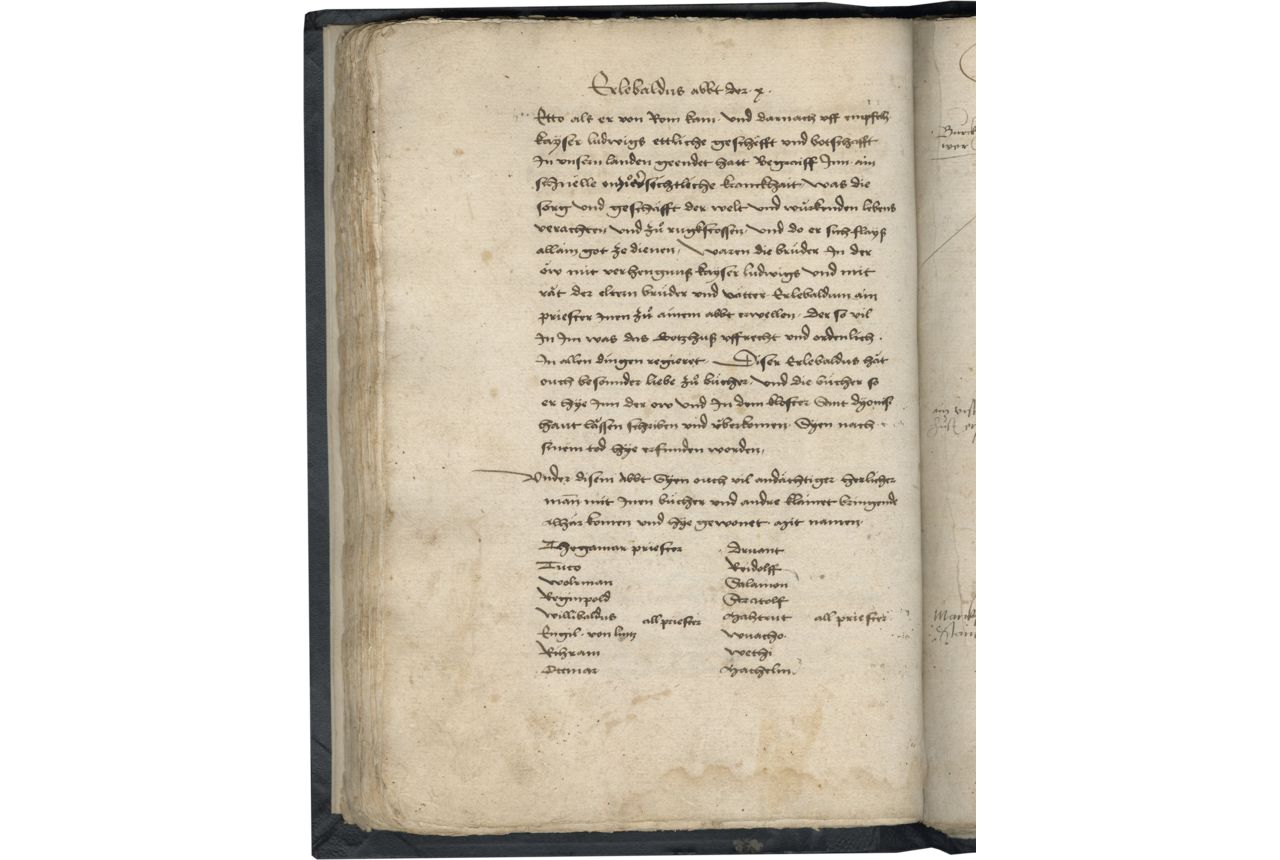 Erlebaldus abbt der .x.
Etto als er von Rom kam und darnach uff empfelh
kayser ludwigs ettliche geschefft und botschafft
In unsern landen geendet hatt Begraiff Inn ain
schnelle kranckhait, was die
sorg und geschäfft der welt und würkenden lebens
verachten und zů rugkstossen und do er sich flayß
allain got ze dienen, waren die brüder In der
ow mit verhengnuß kayser ludwigs und mit
rät der eltern brüder und vätter Erlebaldum ain
priester Inen zů ainem abbt erwellen. der so vil
In Im was das Gotzhuß uffrecht und ordenlich.
In allen dingen regieret. Diser Erlebaldus hät
ouch besonder liebe zů bücher, und die bücher so
er hye Inn der ow und In dem kloster Sant dyonisi
haut lässen schriben und überkomen Syen nach
sinem tod hye erfunden worden,
Under disem Abbt Syen ouch vil andächtiger herlicher
mañ mit Inen bücher und andre klainet bringende
alhär komen und hye gewonet mit namen
Thegamar priester
Tuto
Wolfman
Reginpold
Willibaldus all priester
Engil. von lintz
Rihram
Otmar
Druant
Reidolff
Salamon
Stratolf
Hahtrut all priester
Wuacho
Wethi
Hachelin.
Burck
wor
Marck